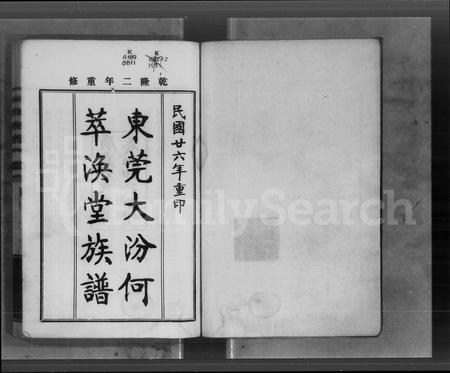 K
0189
8811
K
修重年二隆乾
民國廿六年重印
東莞大汾何
萃渙堂族譜
FamilySearch